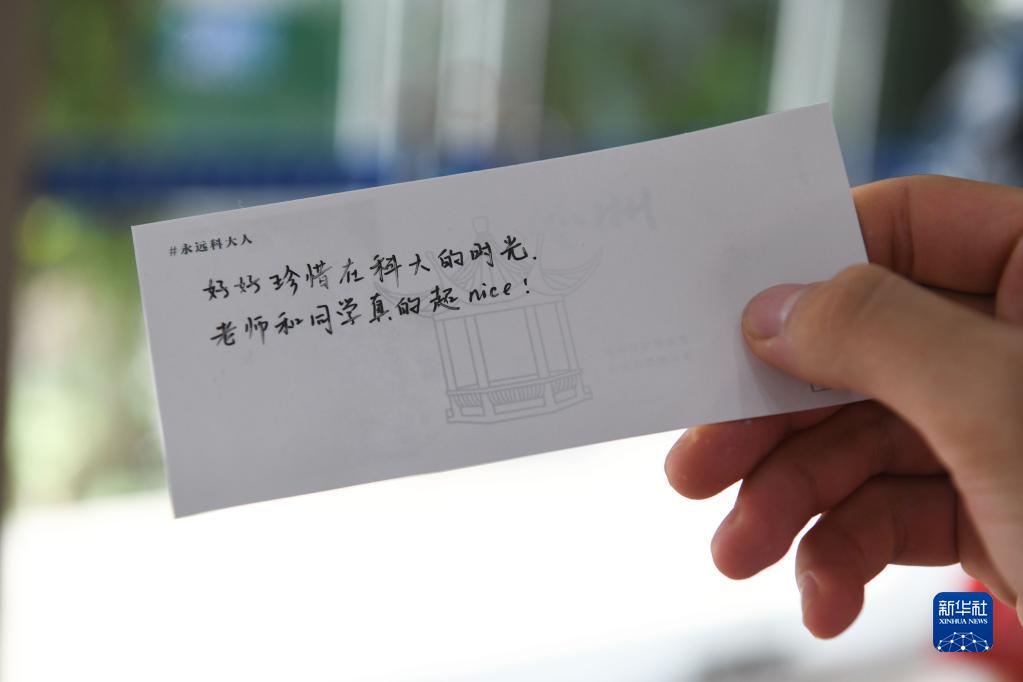 #永远科大人
好好珍惜在科大的时光.
老师和同学真的超nice!
新华社
XINHUA NEWS